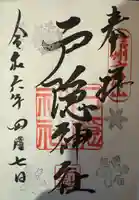 奉拝
戸隠神社
令和六年四月七日